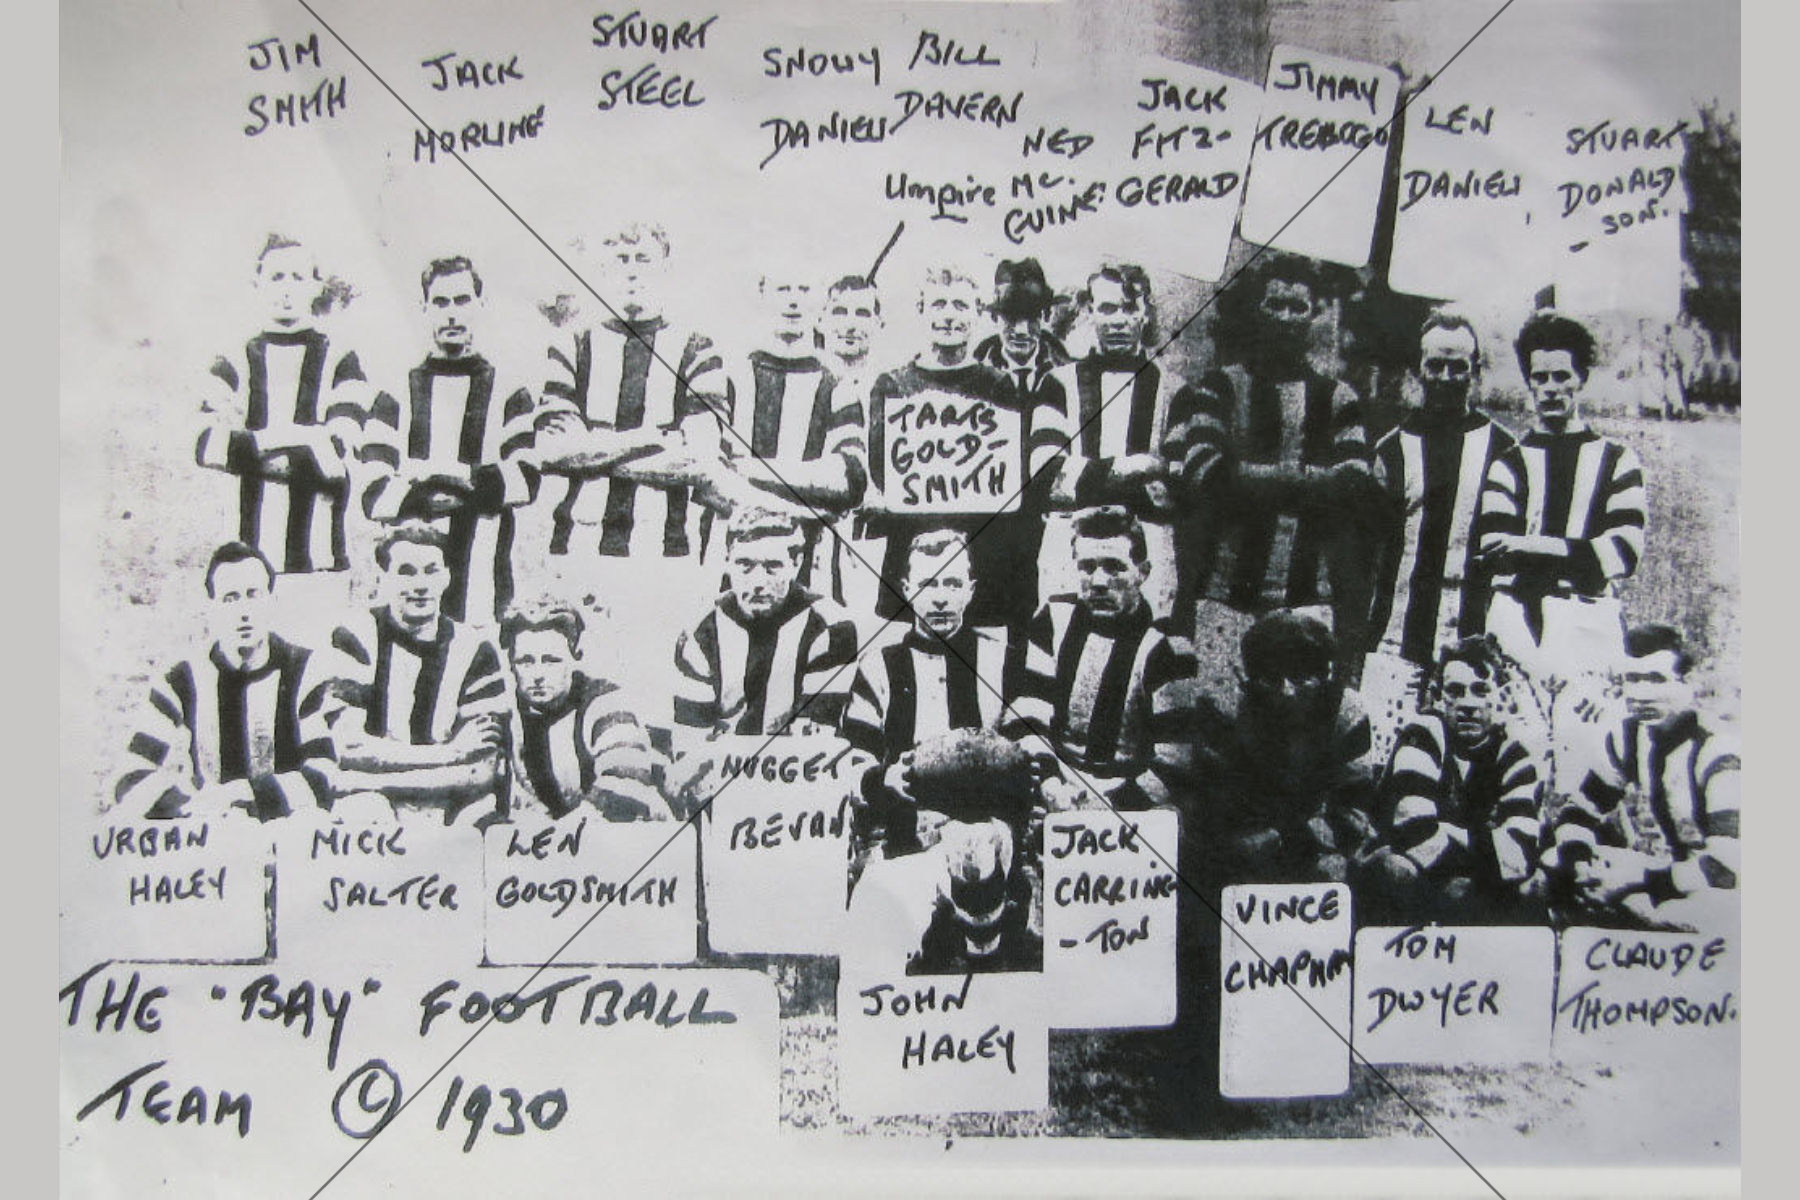 JIM
SMITH
JACK
MORLING
STUART
STEEL
SNOWY
DANIELL
BILL
DAVERN
Umpire
NED
Mc.
GUINE:
JACK
FITZ-
GERALD
JIMMY
LEN
DANIELL
STUART
DONALD
- SON.
TARTS
GOLD-
SMITH
URBAN
HALEY
MICK
SALTER
LEN
GOLDSMITH
NUGGET
BEVAN
JOHN
HALEY
JACK
CARRING
- TON
VINCE
CHAPMAN
TOM
DWYER
CLAUDE
THOMPSON.
THE "BAY" FOOTBALL
TEAM © 1930